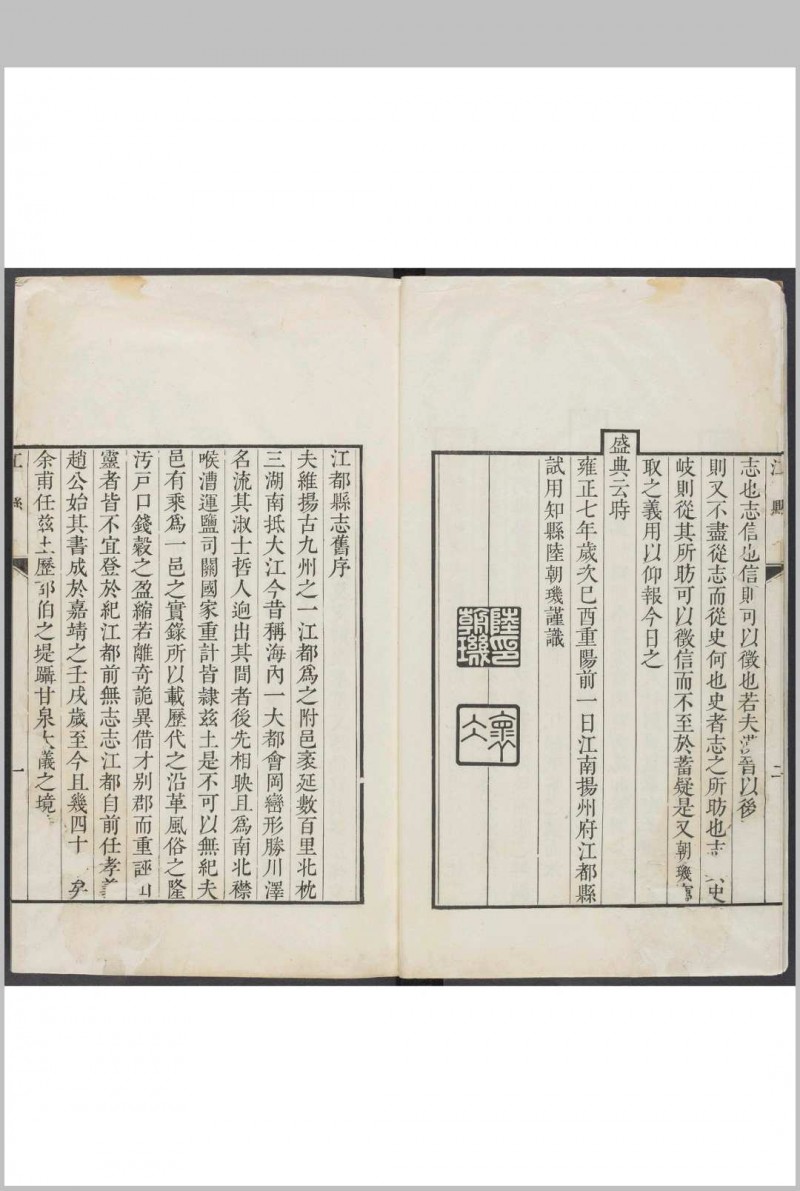 志也志信也信則可以徵也若夫以後
則又不盡從志而從史何也史者志之所昉也志史
岐則從其所昉可以徵信而不至於蓄疑是又朝璣
取之義用以仰報今日之
盛典云時
雍正七年歲次己酉重陽前一日江南揚州府江都縣
試用知縣陸朝璣謹識
陸朝璣印
江都縣志舊序
夫維揚古九州之一江都爲之附邑袤延數百里北枕
三湖南抵大江今昔稱海內一大都會岡巒形勝川澤
名流其淑士哲人逈出其間者後先相映且爲南北襟
喉漕運鹽司關國家重計皆隷茲土是不可以無紀夫
邑有乘爲一邑之實錄所以載歷代之沿革風俗之隆
汚戸口錢穀之盈縮若離奇詭異借才别郡而重誣
靈者皆不宜登於紀江都前無志志江都自前任孝
趙公始其書成於嘉靖之壬戌歲至今且幾四十矣
余甫任茲土歷邵伯之堤躡甘泉大儀之境
一
二